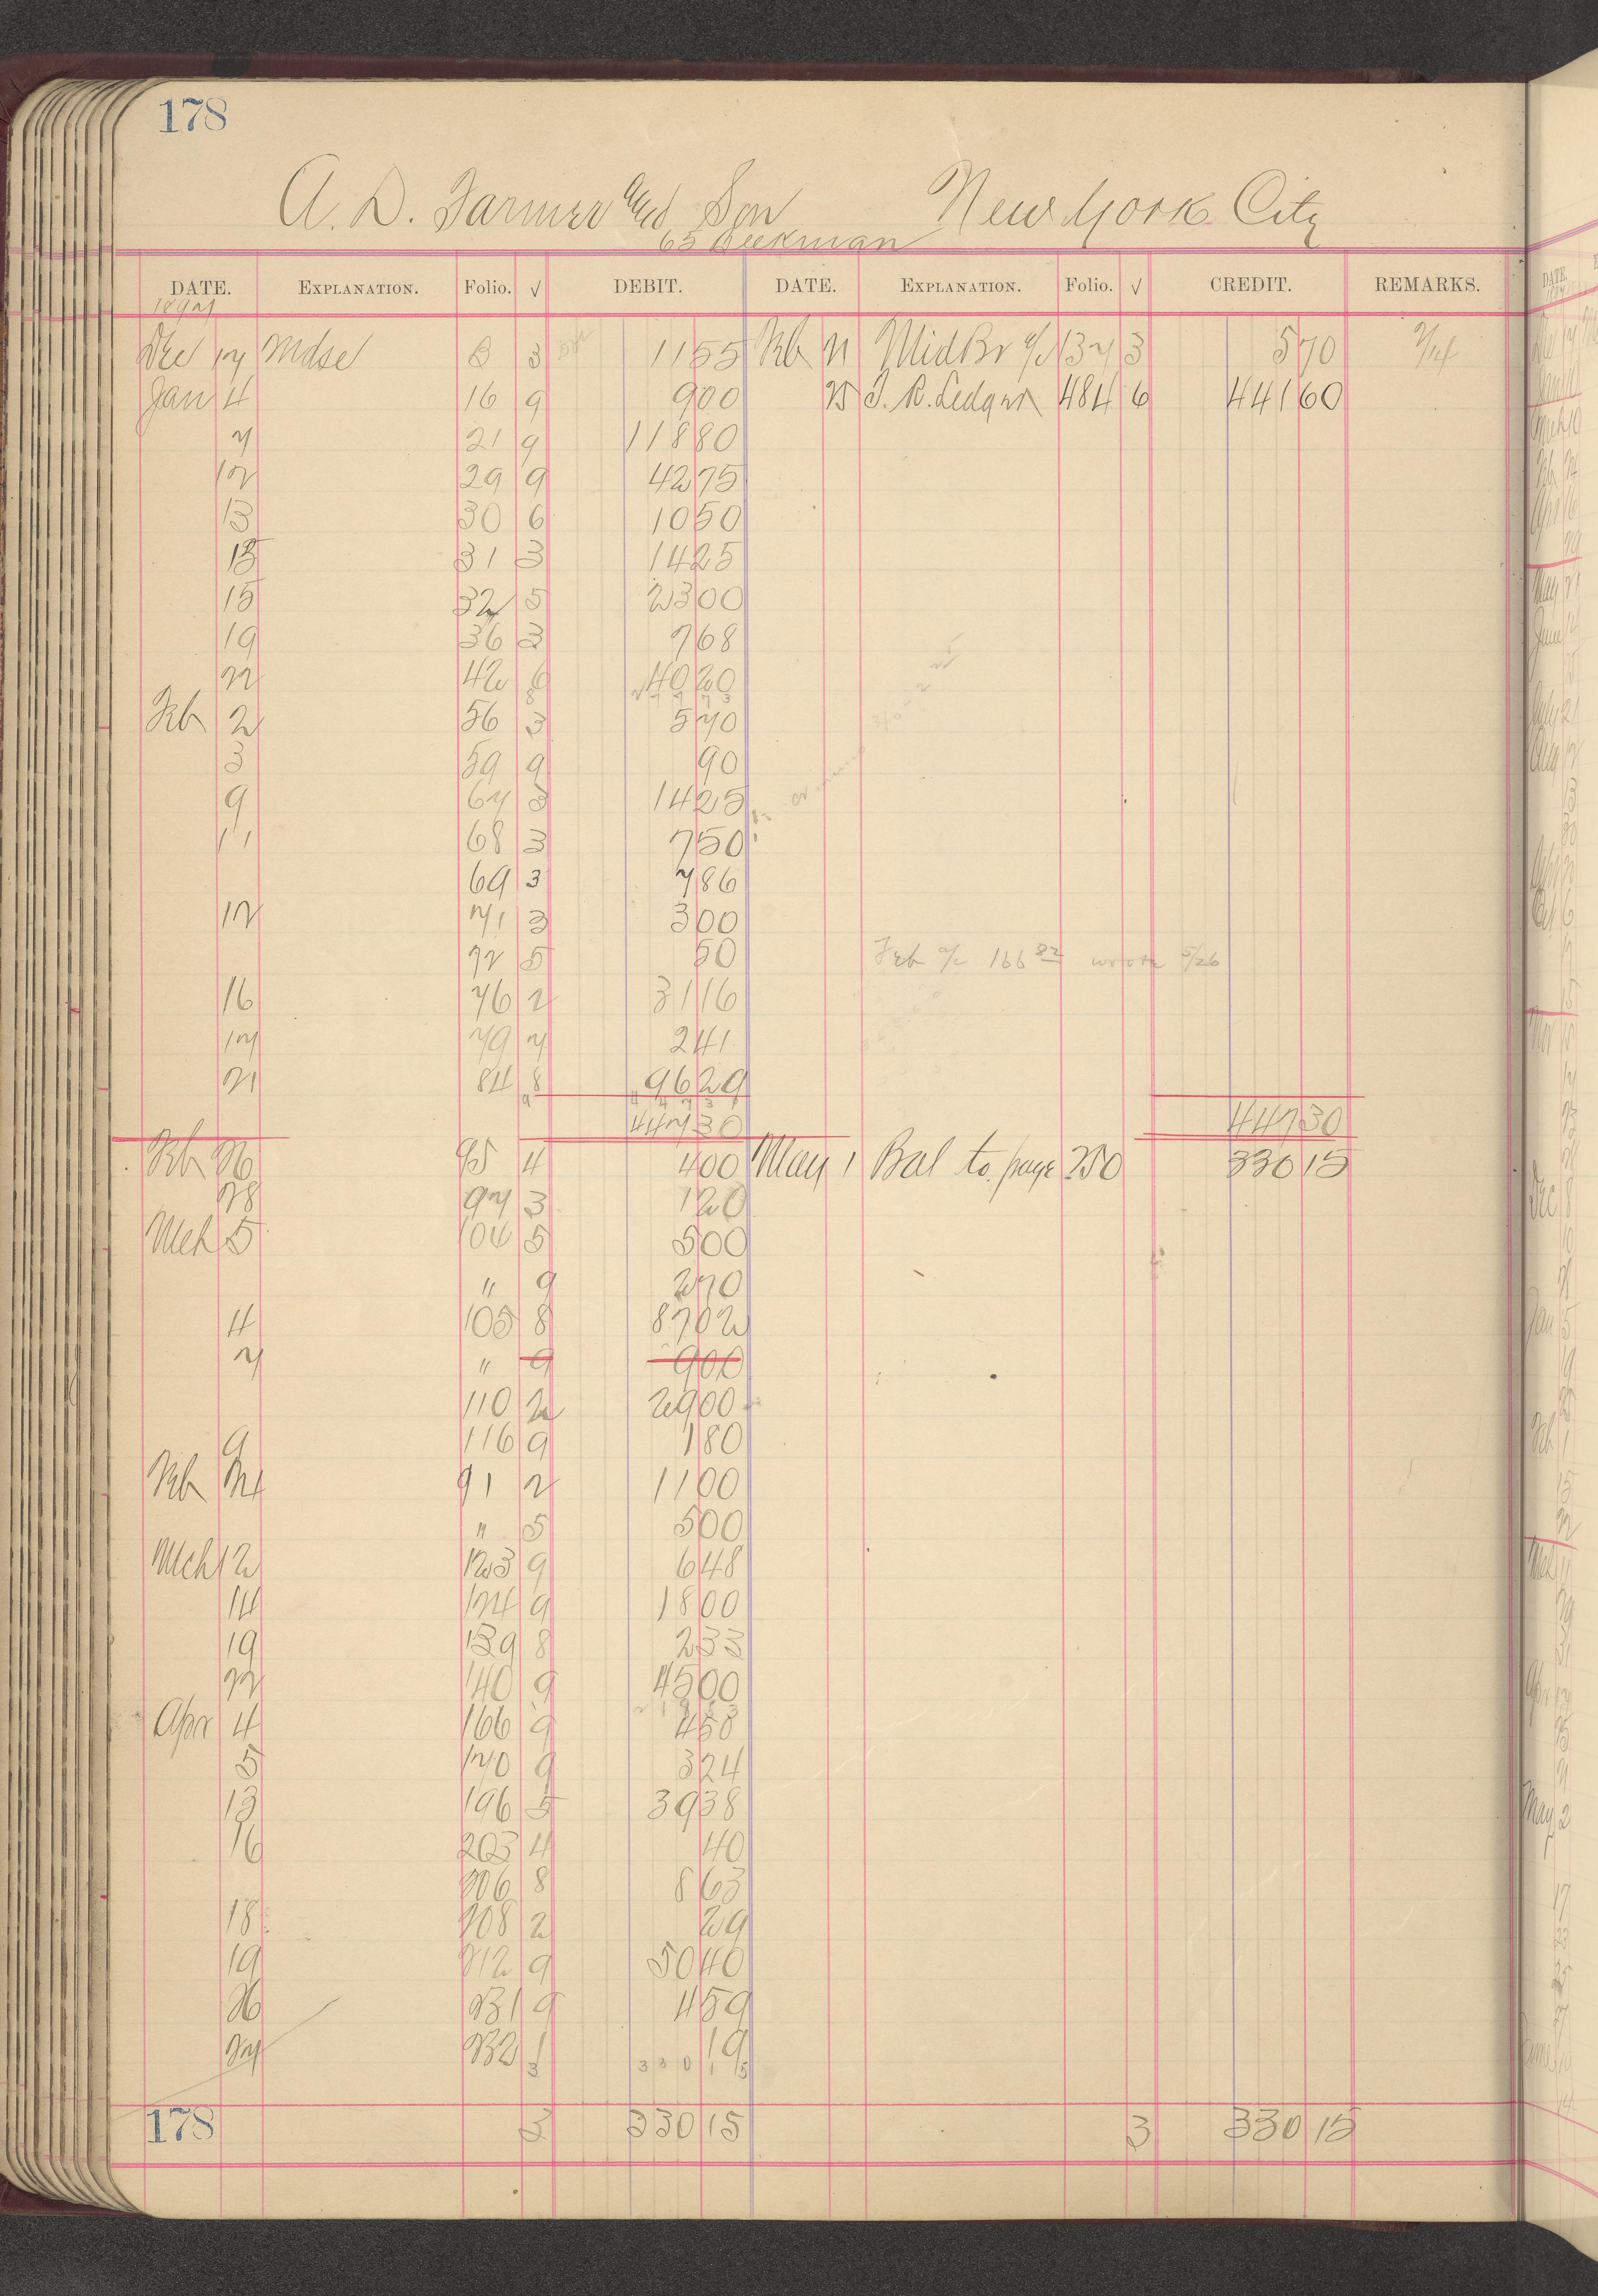 178
A. D. Farmer and Son New York City
65 Beekman
DATE. EXPLANATION. Folio. √ DEBIT. DATE. EXPLANATION. Folio. √ CREDIT. REMARKS.
1897
Dec 17 Mdse 8 3 11 55 Feb 21 Mid Br a/c 137 3 5 70 2/14
Jan 4 16 9 9 00 25 T. R. Ledger 484 6 441 60
7 21 9 118 80
12 29 9 42 75
13 30 6 10 50
15 31 3 14 25
15 32 5 23 00
19 36 3 7 68
22 42 6 40 20
Feb 2 56 3 5 70
3 59 9 90
9 67 3 14 25
11 68 3 7 50
69 3 7 86
12 71 3 3 00
72 5 50 Feb a/c 166 82 wrote 5/26
16 76 2 31 16
17 79 7 2 41
21 84 8 96 29
447 30 447 30
Feb 26 95 4 4 00 May 1 Bal to page 250 330 15
28 97 3 1 20
Mch 5 104 5 5 00
" 9 2 70
4 105 8 87 02
7 " 9 9 00
110 2 29 00
9 116 9 1 80
Feb 24 91 2 11 00
" 5 5 00
Mch 12 123 9 6 48
14 124 9 18 00
19 139 8 2 33
22 140 9 45 00
Apr 4 166 9 4 50
5 170 9 3 24
13 196 5 39 38
16 203 4 40
206 8 8 63
18 208 2 29
19 212 9 50 40
26 231 9 4 59
27 232 1 19
3 330 15
178 3 330 15 3 330 15